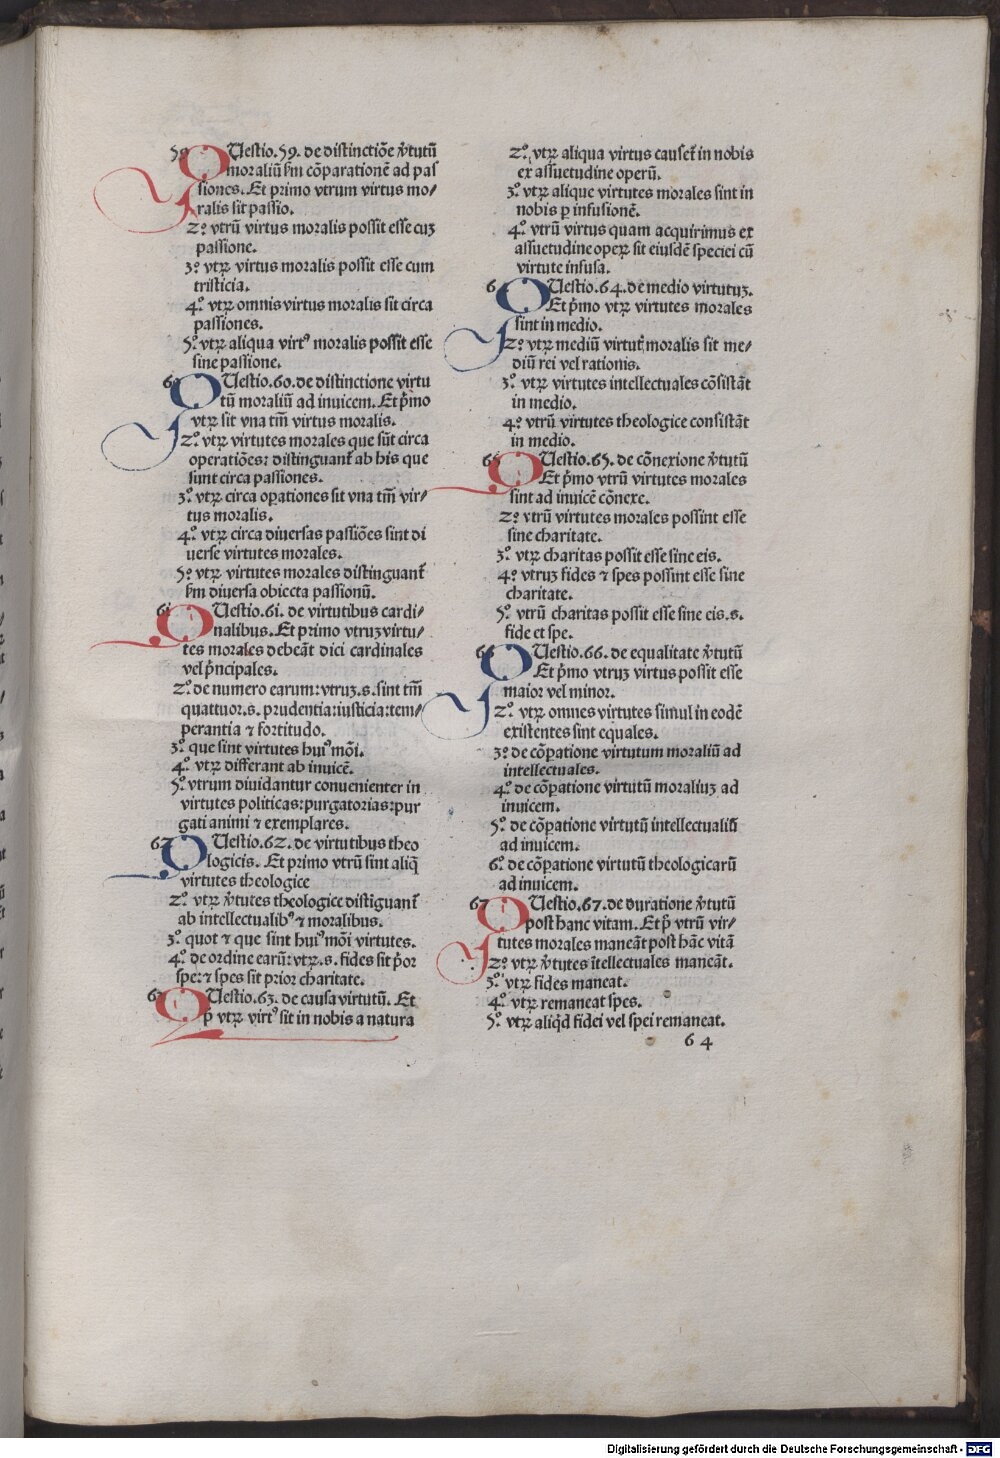 59 QUestio.59. de distinctiõe v̓tutũ
moraliũ ẜm cõparationẽ ad pas
siones. Et primo vtrum virtus mo⸗
ralis sit passio.
2º vtrũ virtus moralis possit esse cuʒ
passione.
3º vtrꝫ virtus moralis possit esse cum
tristicia.
4º vtrꝫ omnis virtus moralis sit circa
passiones.
5º vtrꝫ aliqua virtꝰ moralis possit esse
sine passione.
60 QUestio.60. de distinctione virtu
tũ moraliũ ad inuicem. Et p̓mo
vtrꝫ sit vna tm̃ virtus moralis.
2º vtrꝫ virtutes morales que sũt circa
operatiões: distinguant̃ ab his que
sunt circa passiones.
3º vtrꝫ circa oꝑationes sit vna tm̃ vir⸗
tus moralis.
4º vtrꝫ circa diuersas passiões sint di
uerse virtutes morales.
5º vtrꝫ virtutes morales distinguant̃
ẜm diuersa obiecta passionũ.
61 QUestio.61. de virtutibus cardi⸗
nalibus. Et primo vtruʒ virtu⸗
tes morales debeãt dici cardinales
vel p̓ncipales.
2º de numero earum: vtruʒ.s. sint tm̃
quattuor.s. prudentia: iusticia: tem⸗
perantia ⁊ fortitudo.
3º que sint virtutes huiꝰmõi.
4º vtrꝫ differant ab inuicẽ.
5º vtrum diuidantur conuenienter in
virtutes politicas: purgatorias: pur
gati animi ⁊ exemplares.
62 QUestio.62. de virtutibus theo
logicis. Et primo vtrũ sint aliq̃
virtutes theologice
2º vtrꝫ v̓tutes theologice distiguant̃
ab intellectualibꝰ ⁊ moralibus.
3º quot ⁊ que sint huiꝰmõi virtutes.
4º de ordine earũ: vtrꝫ.s. fides sit p̓or
spe: ⁊ spes sit prior charitate.
63 QUestio.63. de causa virtutũ. Et
p̓ vtrꝫ virtꝰ sit in nobis a natura
2º vtrꝫ aliqua virtus causet̃ in nobis
ex assuetudine operũ.
3º vtrꝫ alique virtutes morales sint in
nobis ꝑ infusionẽ.
4º vtrũ virtus quam acquirimus ex
assuetudine operꝫ sit eiusdẽ speciei cũ
virtute infusa.
64 QUestio.64. de medio virtutuʒ.
Et p̓mo vtrꝫ virtutes morales
sint in medio.
2º vtrꝫ mediũ virtut̃ moralis sit me⸗
diũ rei vel rationis.
3º vtrꝫ virtutes intellectuales cõsistãt
in medio.
4º vtrũ virtutes theologice consistãt
in medio.
65 QUestio.65. de cõnexione v̓tutũ
Et p̓mo vtrũ virtutes morales
sint ad inuicẽ cõnexe.
2º vtrũ virtutes morales possint esse
sine charitate.
3º vtrꝫ charitas possit esse sine eis.
4º vtruʒ fides ⁊ spes possint esse sine
charitate.
5º vtrũ charitas possit esse sine eis.s.
fide et spe.
66 QUestio.66. de equalitate v̓tutũ
Et p̓mo vtruʒ virtus possit esse
maior vel minor.
2º vtrꝫ omnes virtutes simul in eodẽ
existentes sint equales.
3º de cõꝑatione virtutum moraliũ ad
intellectuales.
4º de cõꝑatione virtutũ moraliuʒ ad
inuicem.
5º de cõꝑatione virtutũ intellectualiũ
ad inuicem.
6º de cõꝑatione virtutũ theologicarũ
ad inuicem.
67 QUestio.67. de duratione v̓tutũ
post hanc vitam. Et p̓ vtrũ vir⸗
tutes morales maneãt post hãc vitã
2º vtrꝫ v̓tutes ĩtellectuales maneãt.
3º vtrꝫ fides maneat.
4º vtrꝫ remaneat spes.
5º vtrꝫ aliq̓d fidei vel spei remaneat.
64
Digitalisierung gefördert durch die Deutsche Forschungsgemeinschaft - DFG